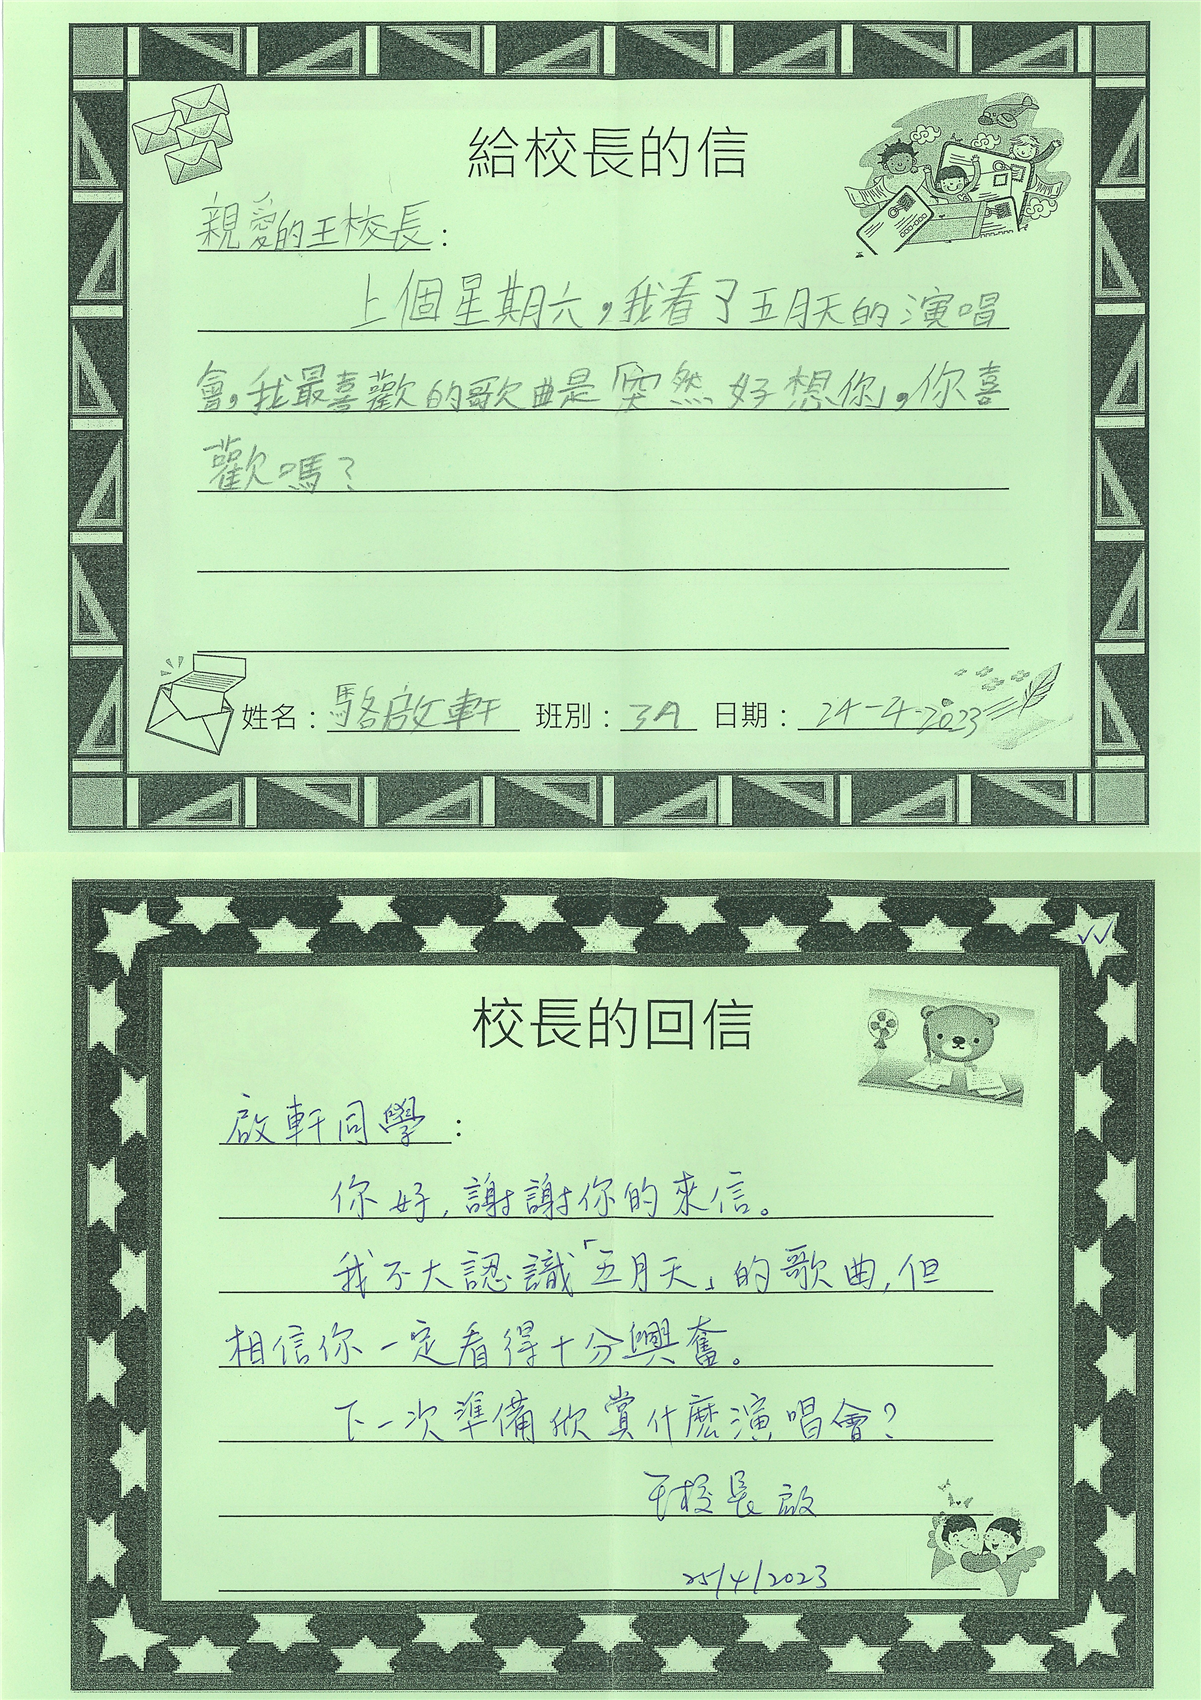 給校長的信
親愛的王校長：
上個星期六，我看了五月天的演唱
會，我最喜歡的歌曲是「突然好想你」，你喜
歡嗎？
姓名：駱啟軒 班別：3A 日期：24-4-2023
校長的回信
啟軒同學：
你好，謝謝你的來信。
我不大認識「五月天」的歌曲，但
相信你一定看得十分興奮。
下一次準備欣賞什麽演唱會？
王校長啟
25/4/2023